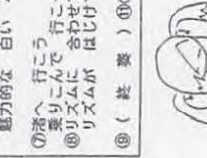 魅力的な 白い
⑦渚へ 行こう
乗りこんで 行こ
⑧リズムに 合わせ
リズムが はじけ
⑨( 終 奏 ) ⑩